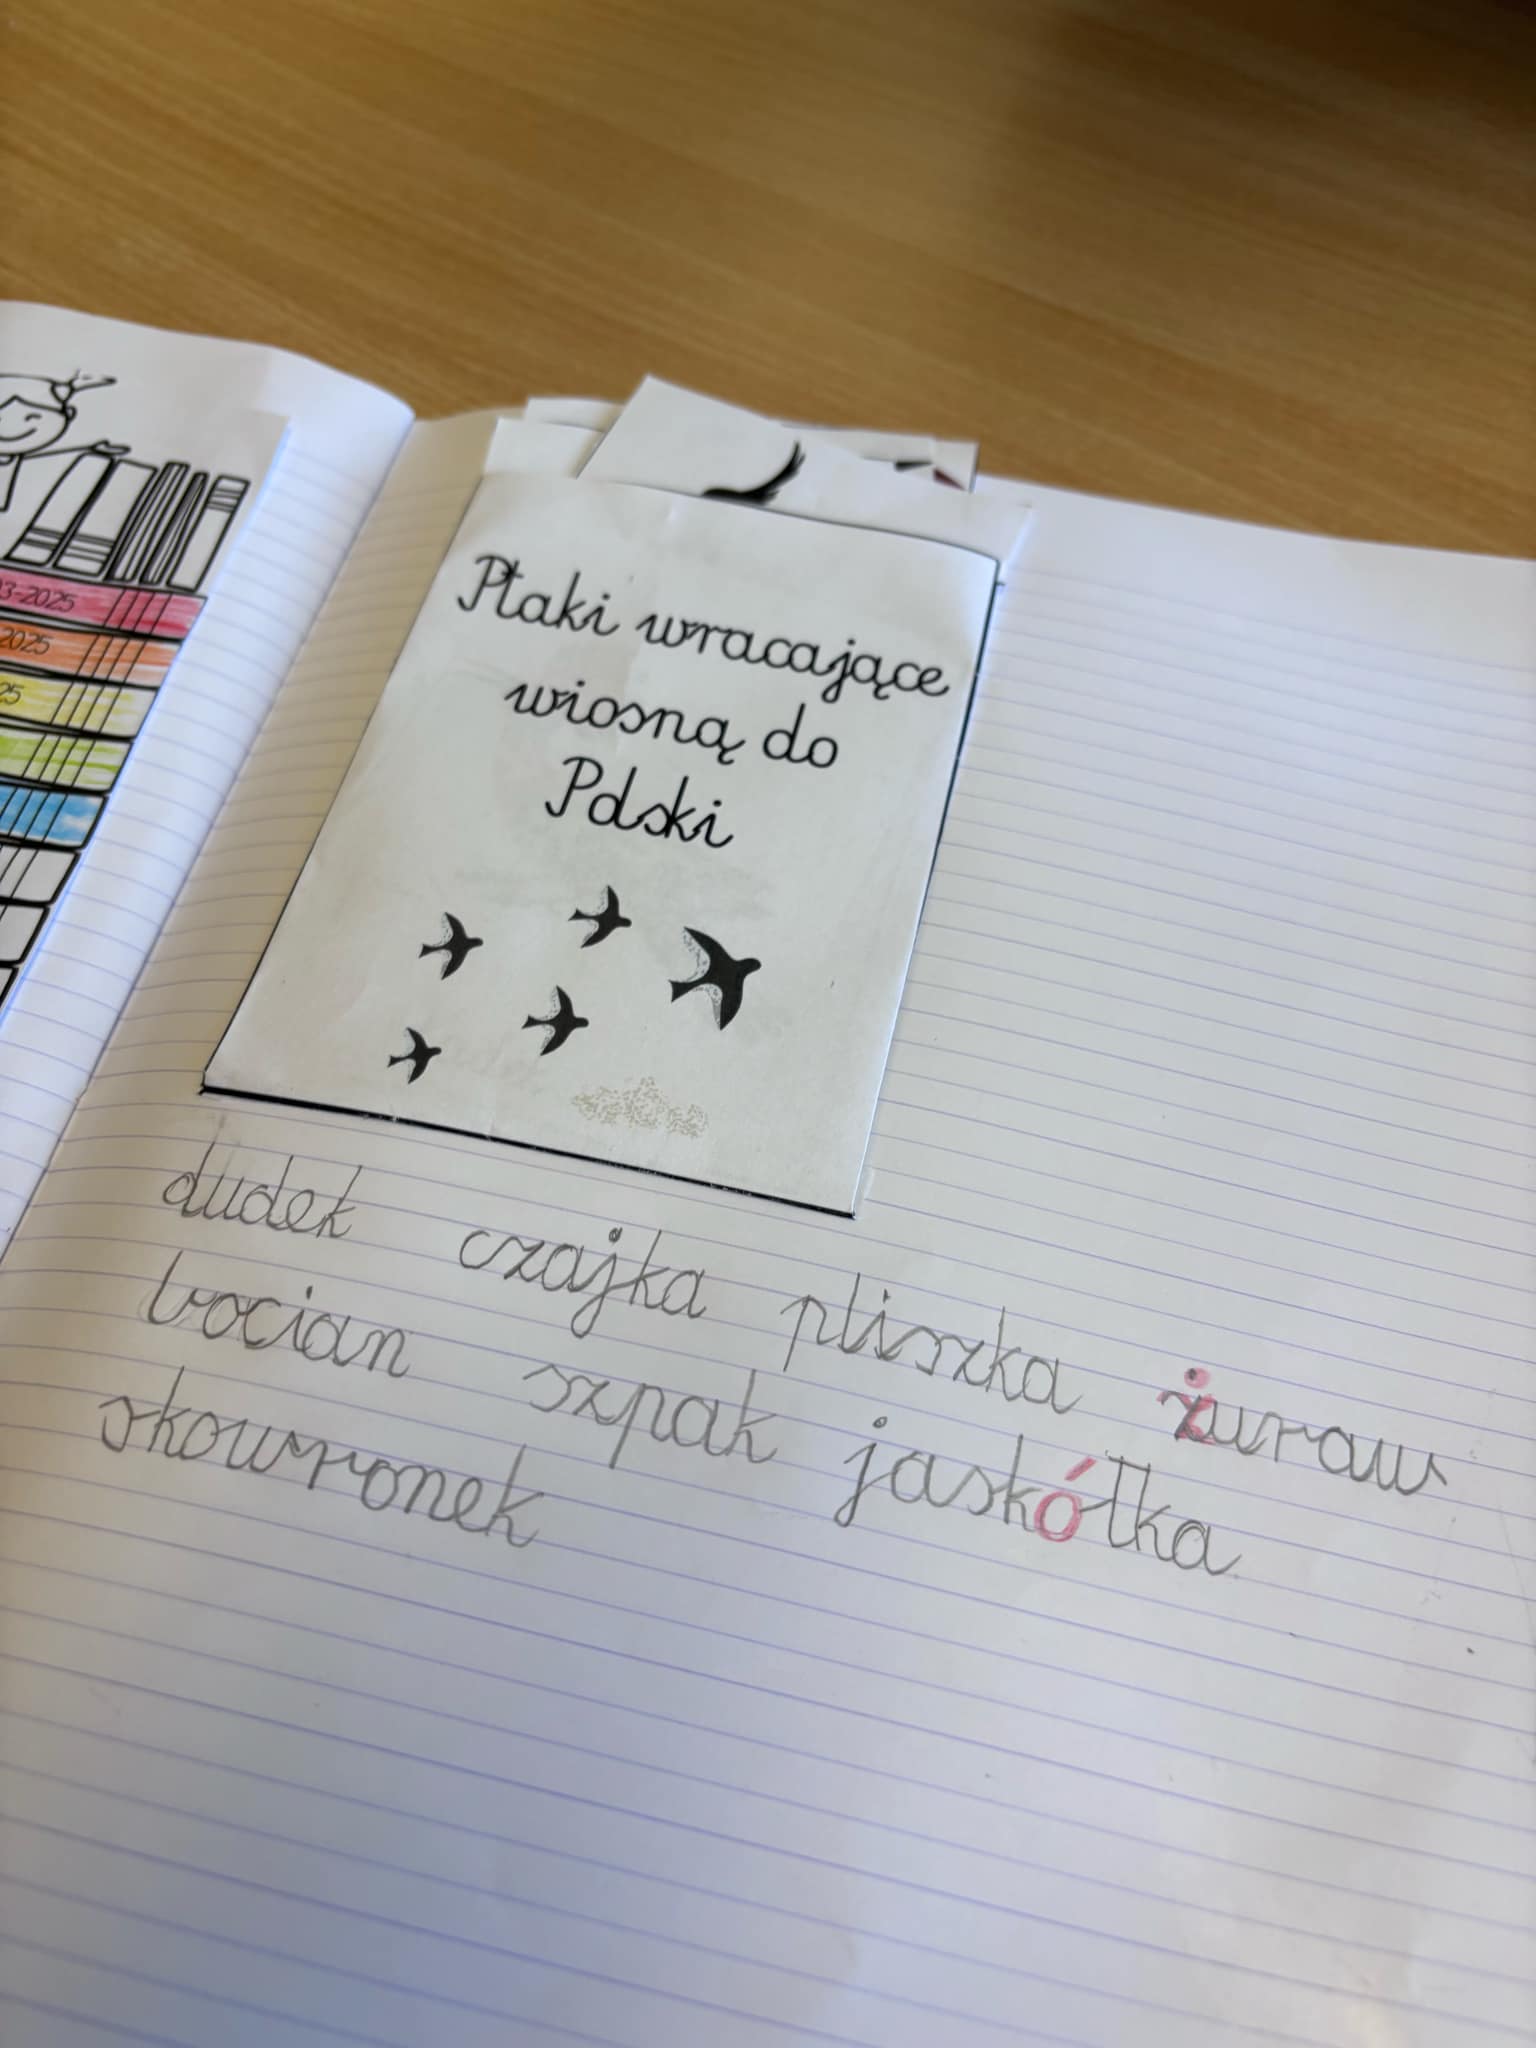 03-2025
2025
25
Ptaki wracające
wiosną do
Polski
dudek czajka pliszka żuraw
bocian szpak jaskółka
skowronek